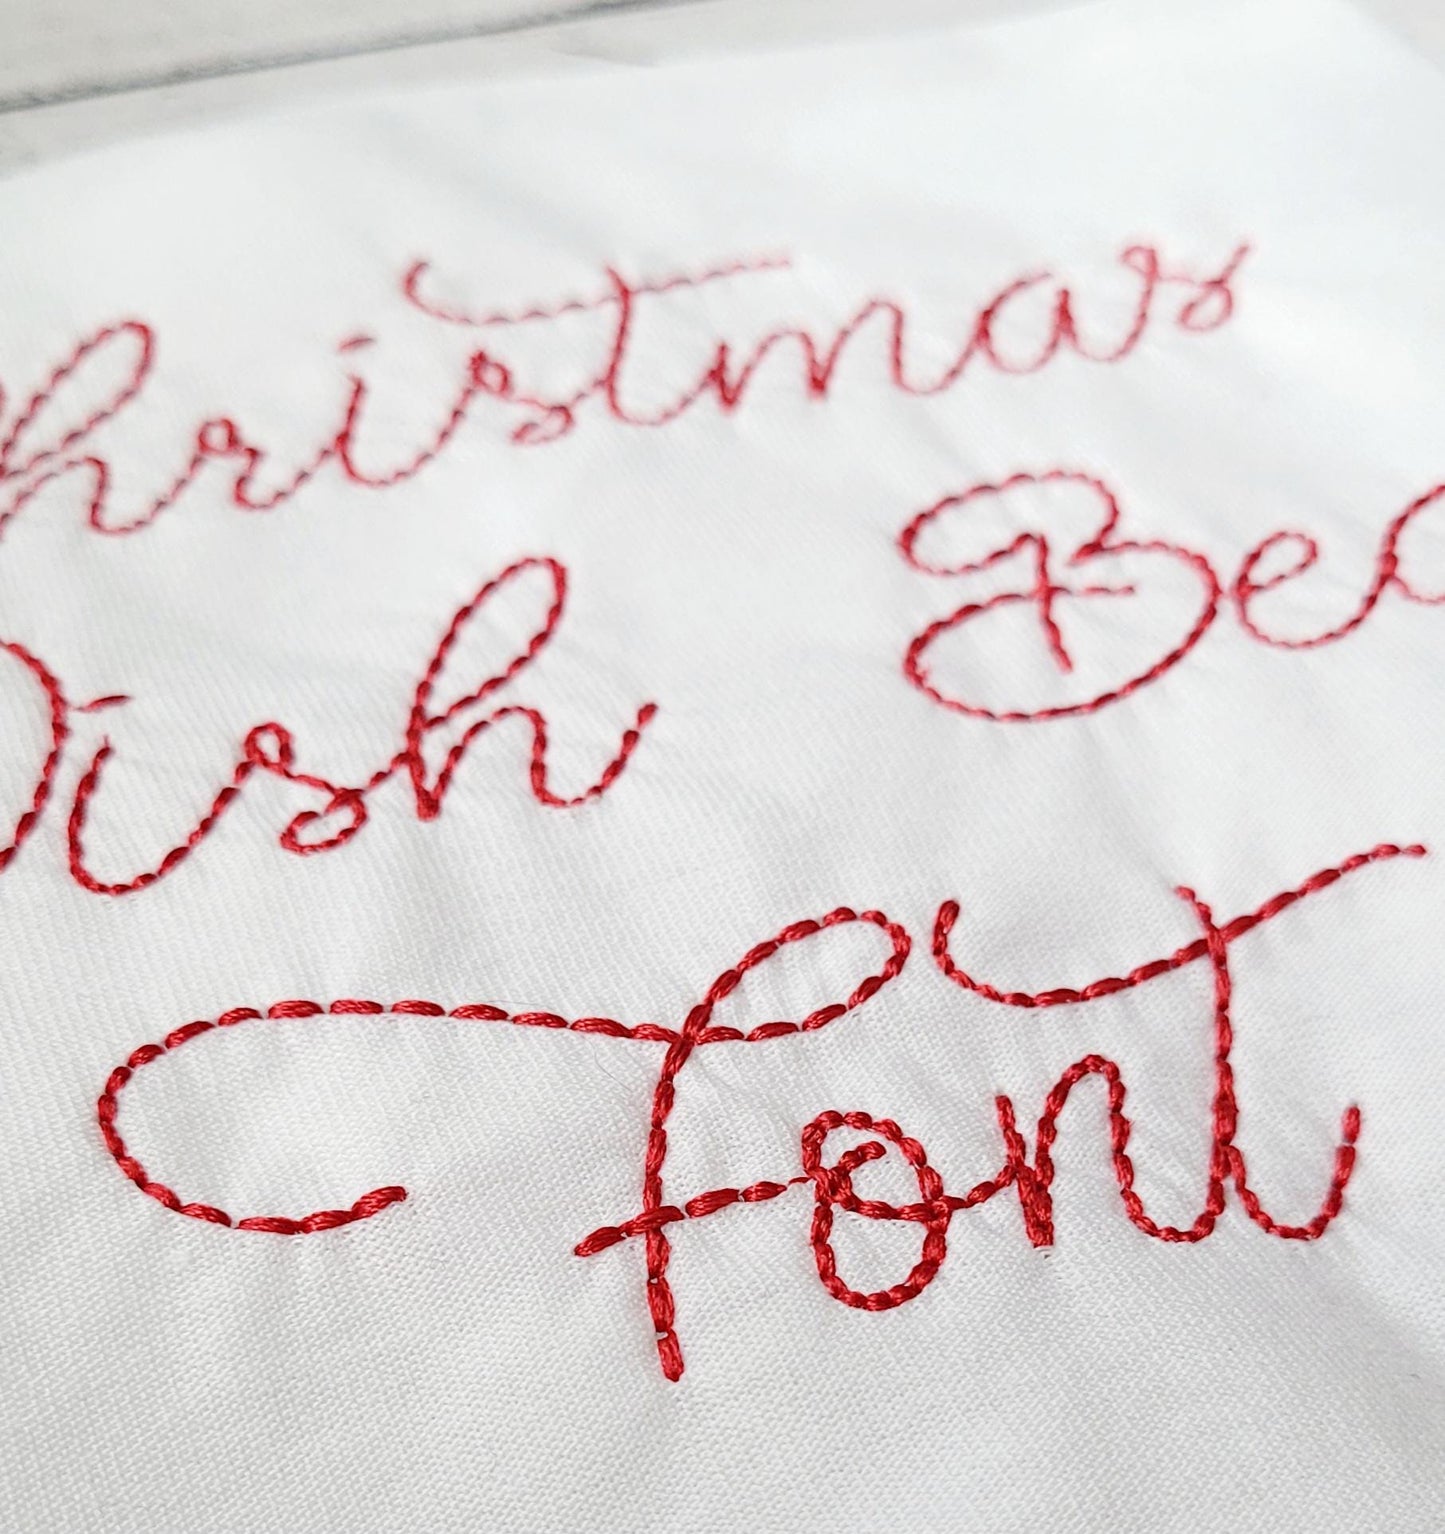 hristmas
ish Bea
Font